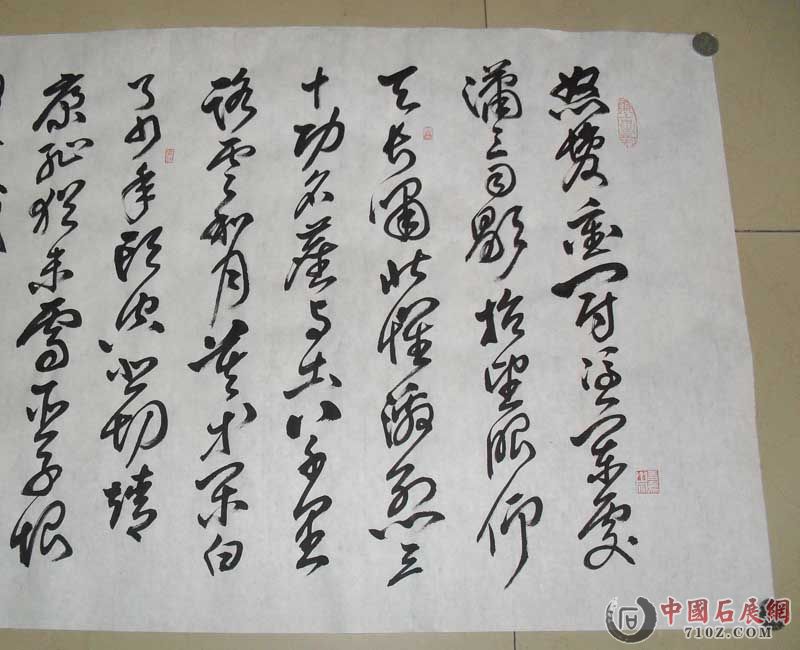 怒髮衝冠憑闌處
瀟々雨歇抬望眼仰
天長嘯壯懷激烈三
十功名塵与土八千里
路雲和月莫等閑白
了少年頭空悲切靖
康恥猶未雪臣子恨
中國石展網
710Z.COM